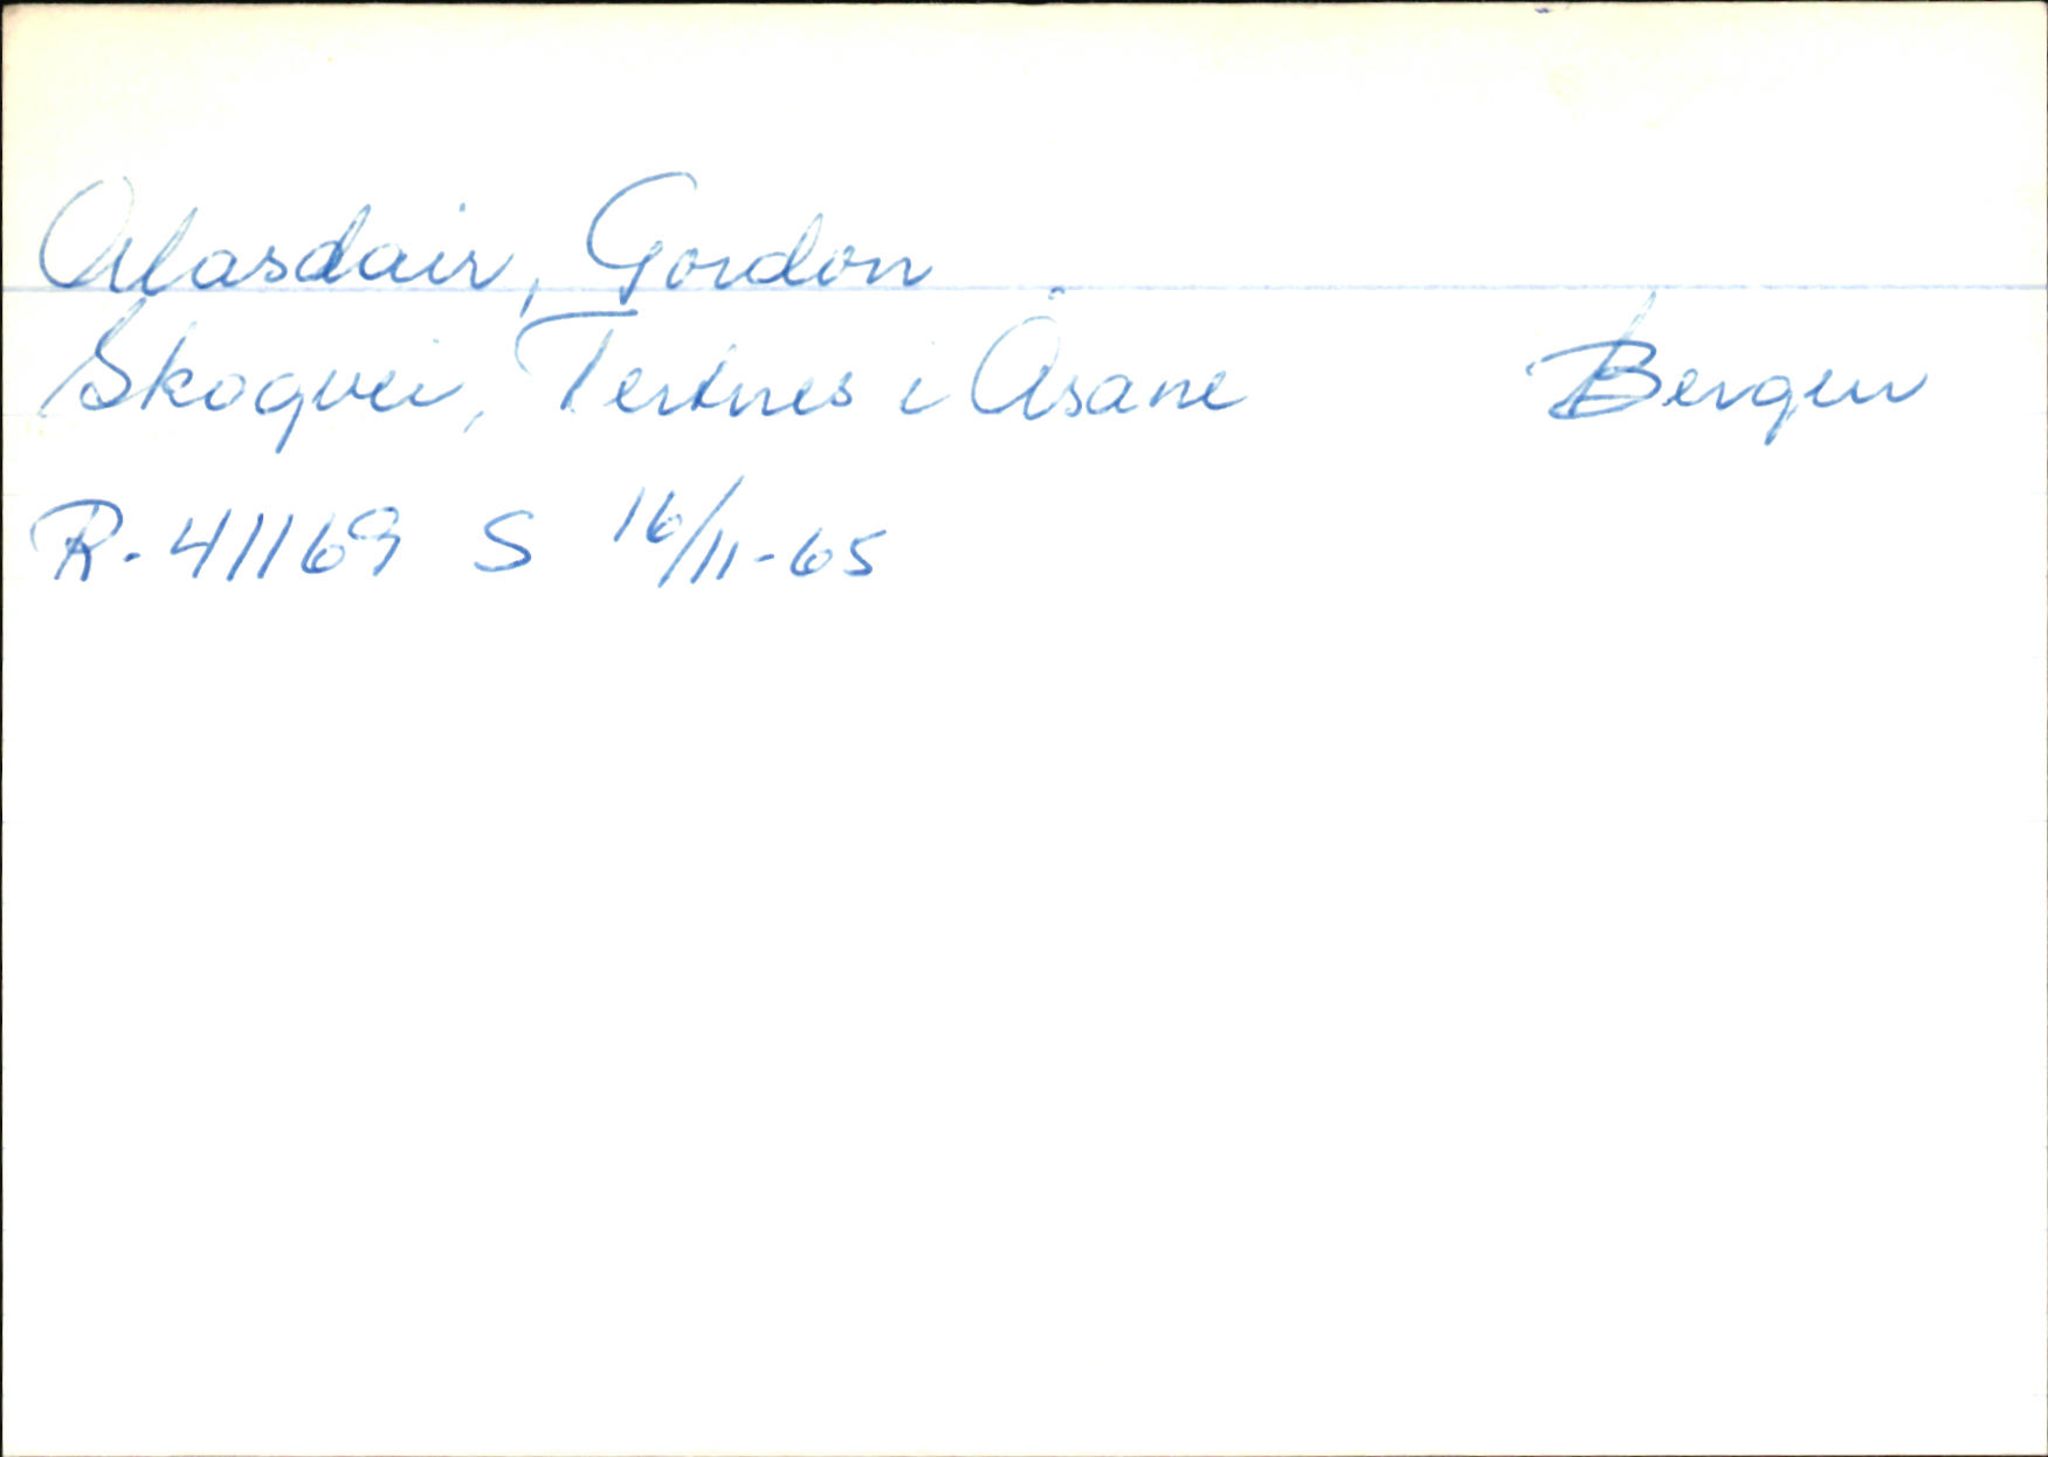 Alasdair, Gordon
Skogvei, Tertnes i Åsane Bergen
R-41169 S 16/11-65